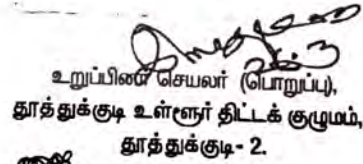 உறுப்பினர் செயலர் (பொறுப்பு),
தூத்துக்குடி உள்ளூர் திட்டக் குழுமம்,
தூத்துக்குடி- 2.